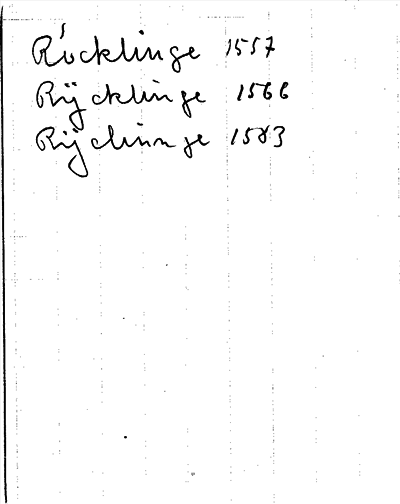 Röcklinge 1557
Rÿcklinge 1566
Rÿclinnge 1583